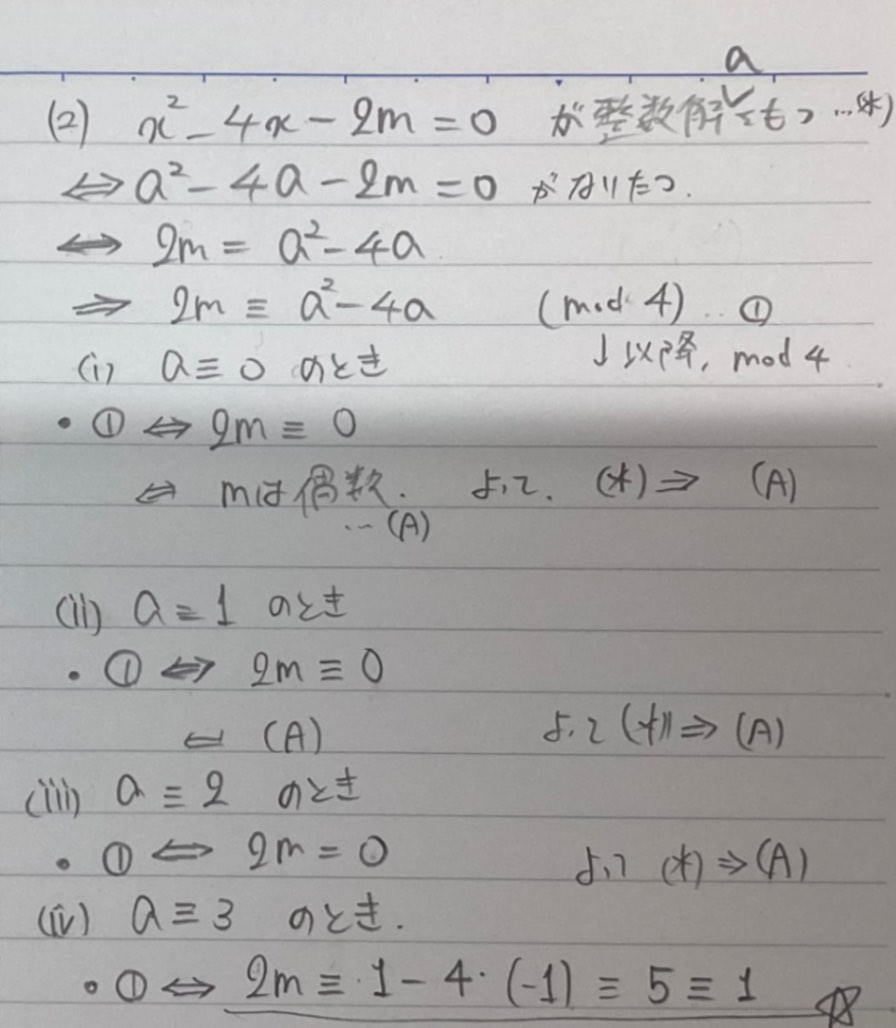 a
(2) x² - 4x - 2m = 0 が整数解をもつ …(*)
⇔ a² - 4a - 2m = 0 がなりたつ.
⇔ 2m = a² - 4a
⇒ 2m ≡ a² - 4a (mod 4) … ①
(i) a ≡ 0 のとき ↓以降, mod 4
・① ⇔ 2m ≡ 0
⇔ mは偶数. よって. (*) ⇒ (A)
… (A)
(ii) a ≡ 1 のとき
・① ⇔ 2m ≡ 0
⇔ (A) よって (*) ⇒ (A)
(iii) a ≡ 2 のとき
・① ⇔ 2m = 0 よって (*) ⇒ (A)
(iv) a ≡ 3 のとき.
・① ⇔ 2m ≡ 1 - 4・(-1) ≡ 5 ≡ 1